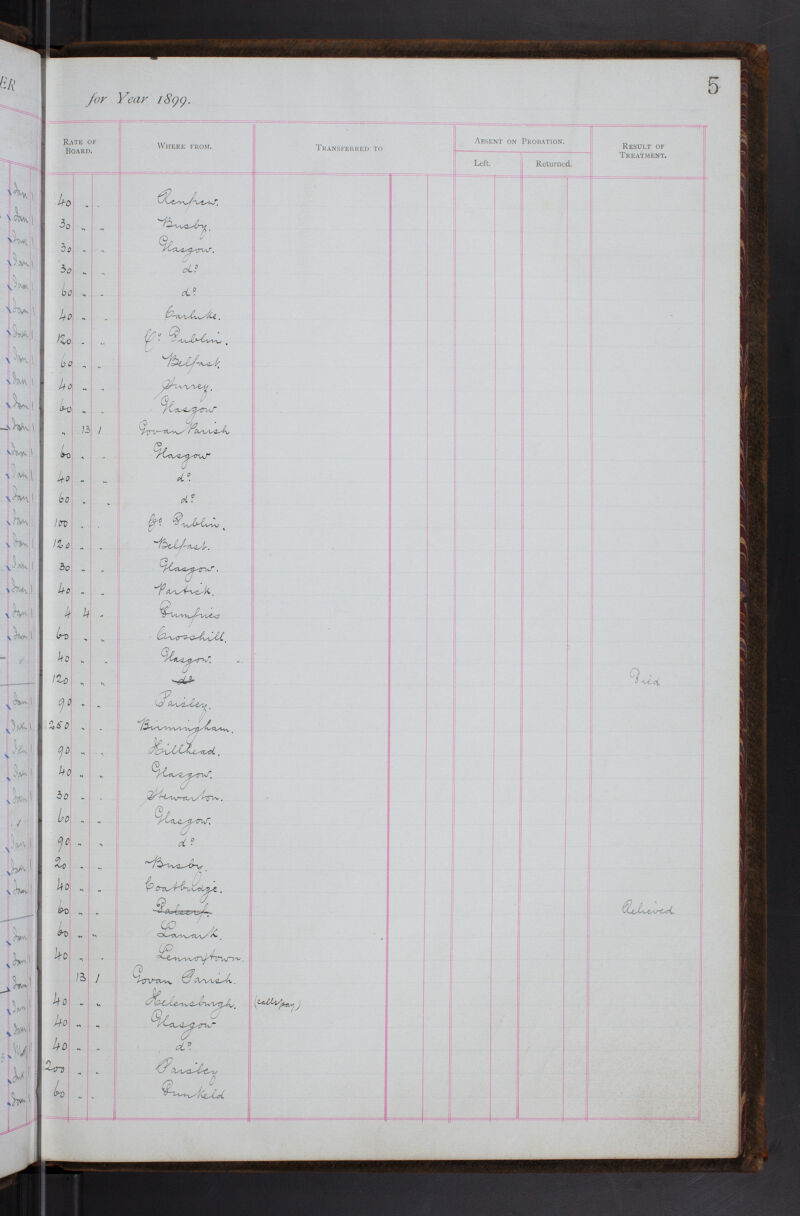 5
for Year 1899.
RATE OF BOARD. WHERE FROM. TRANSFERRED TO ABSENT ON PROBATION. RESULT OF TREATMENT.
Left. Returned.
40 " " Renfrew.
30 " " Busby.
30 " " Glasgow.
30 " " do
60 " " do
40 " " Carluke.
120 " " Co Dublin.
60 " " Belfast.
40 " " Surrey.
60 " " Glasgow
" 13 1 Govan Parish
60 " " Glasgow
40 " " do
60 " " do
100 " " Co Dublin.
120 " " Belfast.
30 " " Glasgow.
40 " " Partick.
4 4 " Dumfries
60 " " Crosshill.
40 " " Glasgow.
120 " " do Died
90 " " Paisley.
250 " " Birmingham.
90 " " Hillhead.
40 " " Glasgow.
30 " " Stewarton.
60 " " Glasgow.
90 " " do
20 " " Busby.
40 " " Coatbridge.
60 " " Dalserf. Relieved
60 " " Lanark.
40 " " Lennoxtown.
13 1 Govan Parish.
40 " " Helensburgh. (calls pay)
40 " " Glasgow
40 " " do
200 " " Paisley
60 " " Dunkeld